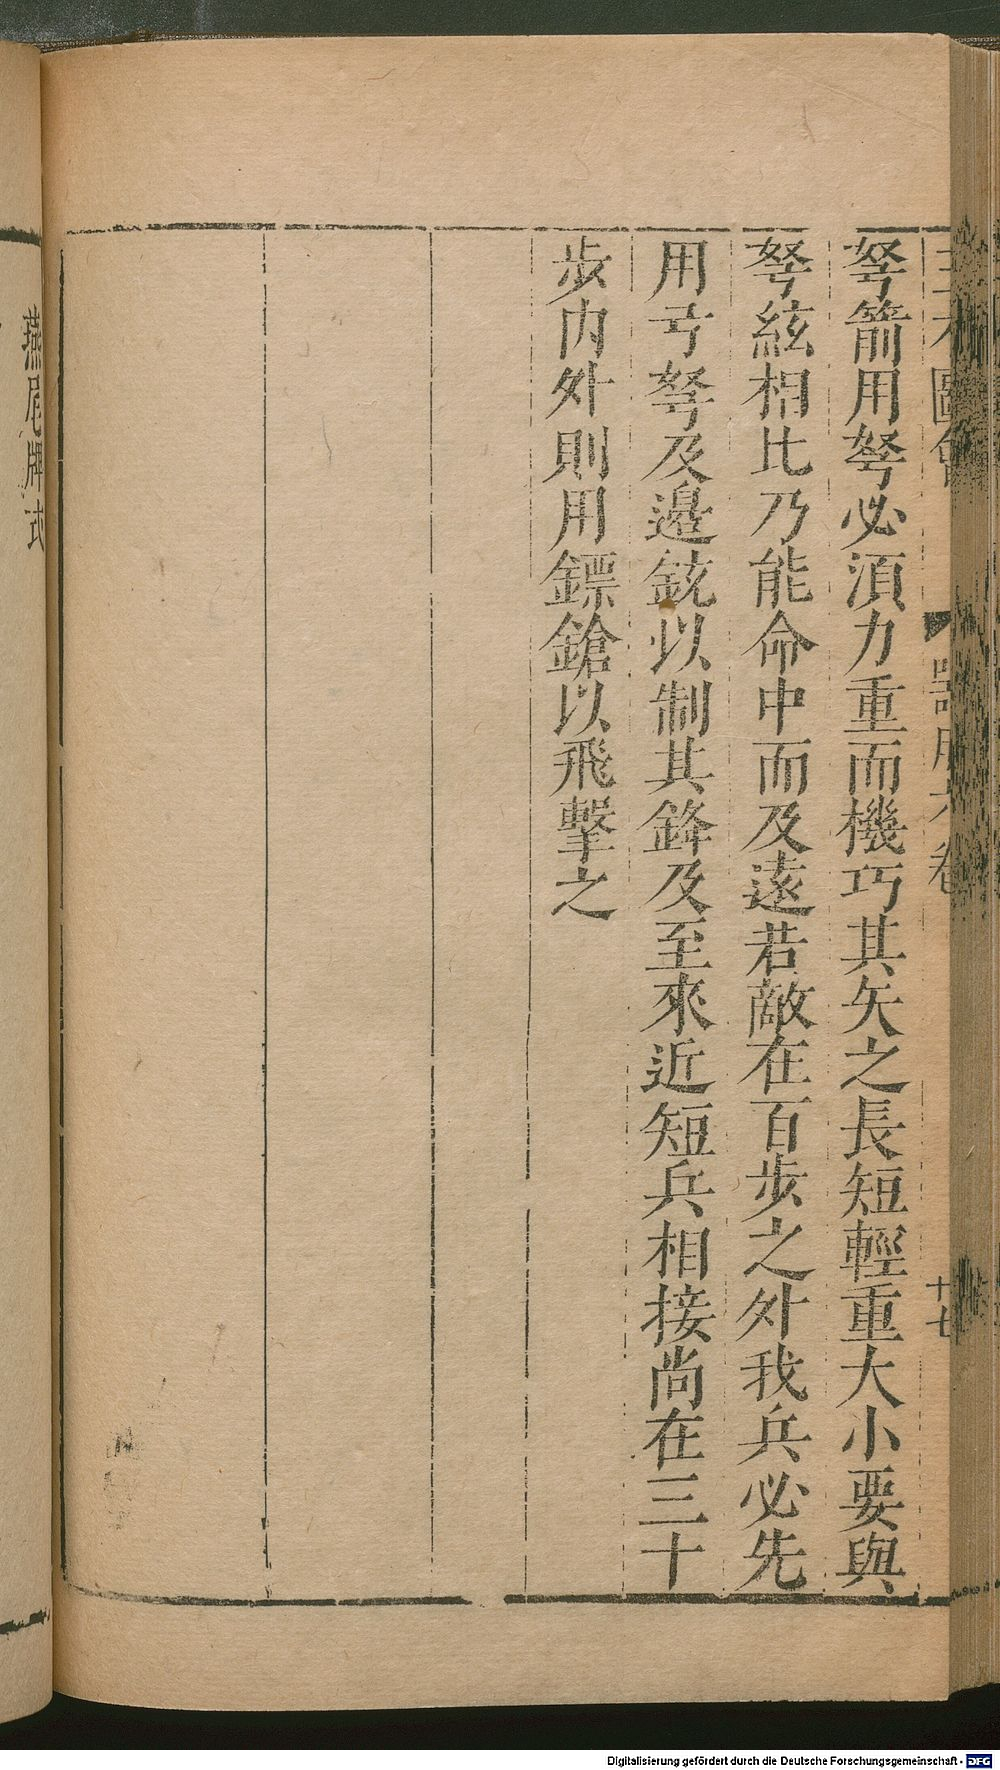 圖會
器用六卷
十七
弩箭用弩必須力重而機巧其矢之長短輕重大小要與
弩絃相比乃能命中而及遠若敵在百步之外我兵必先
用弓弩及邊銃以制其鋒及至來近短兵相接尚在三十
步内外則用鏢鎗以飛擊之
燕尾牌式
Digitalisierung gefördert durch die Deutsche Forschungsgemeinschaft - DFG